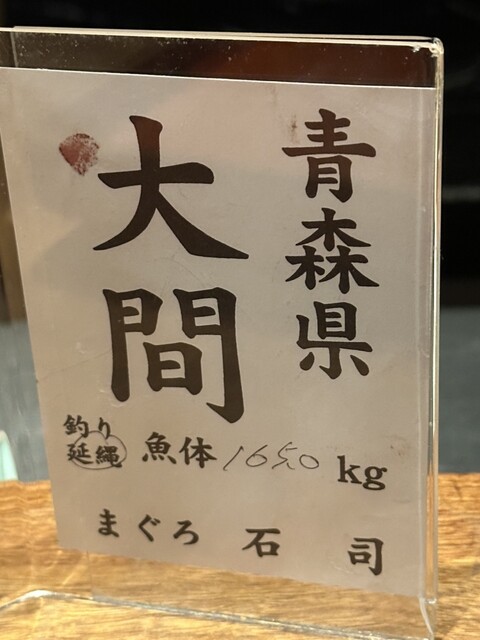 青森県
大間
釣り
延縄
魚体 165.0 kg
まぐろ 石司